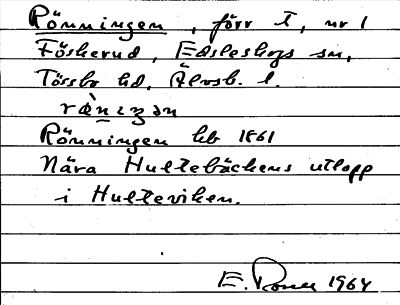 Rönningen, förr T, nr 1
Föskerud, Edsleskogs sn,
Tössbo hd, Älvsb. l.
Rönningen hb 1861
Nära Hultebäckens utlopp
i Hulteviken.
E. 1964